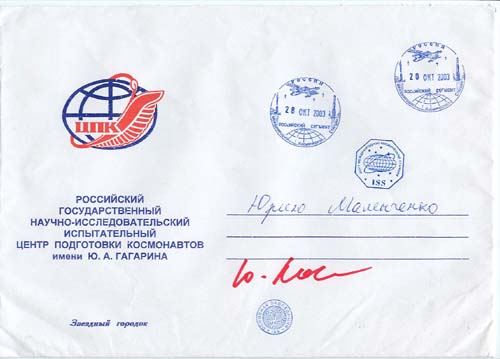 РОССИЯ
20 ОКТ 2003
РОССИЙСКИЙ СЕГМЕНТ
РОССИЯ
28 ОКТ 2003
РОССИЙСКИЙ СЕГМЕНТ
ЦПК
ISS
РОССИЙСКИЙ
ГОСУДАРСТВЕННЫЙ
НАУЧНО-ИССЛЕДОВАТЕЛЬСКИЙ
ИСПЫТАТЕЛЬНЫЙ
ЦЕНТР ПОДГОТОВКИ КОСМОНАВТОВ
имени Ю. А. ГАГАРИНА
Юрию Маленченко
Звездный городок